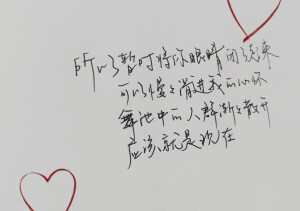 所以暂时将你眼睛闭了起来
可以慢慢滑进我的心怀
舞池中的人群渐渐散开
应该就是现在